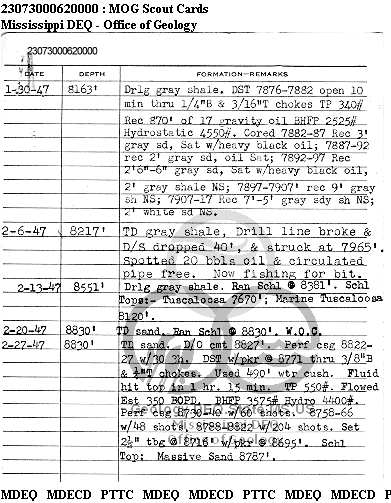 23073000620000 : MOG Scout Cards
Mississippi DEQ - Office of Geology
23073000620000
DATE DEPTH FORMATION—REMARKS
1-30-47 8163' Drlg gray shale. DST 7876-7882 open 10
min thru 1/4"B & 3/16"T chokes TP 340#
Rec 870' of 17 gravity oil BHFP 2525#
Hydrostatic 4550#. Cored 7882-87 Rec 3'
gray sd, Sat w/heavy black oil; 7887-92
rec 2' gray sd, oil Sat; 7892-97 Rec
2'6"-6" gray sd, Sat w/heavy black oil,
2' gray shale NS; 7897-7907' rec 9' gray
sh NS; 7907-17 Rec 7'-5' gray sdy sh NS;
2' white sd NS.
2-6-47 8217' TD gray shale, Drill line broke &
D/S dropped 40', & struck at 7965'.
Spotted 20 bbls oil & circulated
pipe free. Now fishing for bit.
2-13-47 8551' Drlg gray shale. Ran Schl @ 8381'. Schl
Tops:- Tuscaloosa 7670'; Marine Tuscaloosa
8120'.
2-20-47 8830' TD sand. Ran Schl @ 8830'. W.O.C.
2-27-47 8830' TD sand. D/O cmt 8827'. Perf csg 8822-
27 w/30 3h. DST w/pkr @ 8771 thru 3/8"B
& ¼"T chokes. Used 490' wtr cush. Fluid
hit top in 1 hr. 15 min. TP 550#. Flowed
Est 350 BOPD. BHFP 3575# Hydro 4400#.
Perf csg 8730-45 w/60 shots. 8758-66
w/48 shots. 8788-8822 w/204 shots. Set
2½" tbg @ 8716' w/pkr @ 8695'. Schl
Top: Massive Sand 8787'.
Mississippi DEQ
Office of Geology
MDEQ MDECD PTTC MDEQ MDECD PTTC MDEQ MDECD P